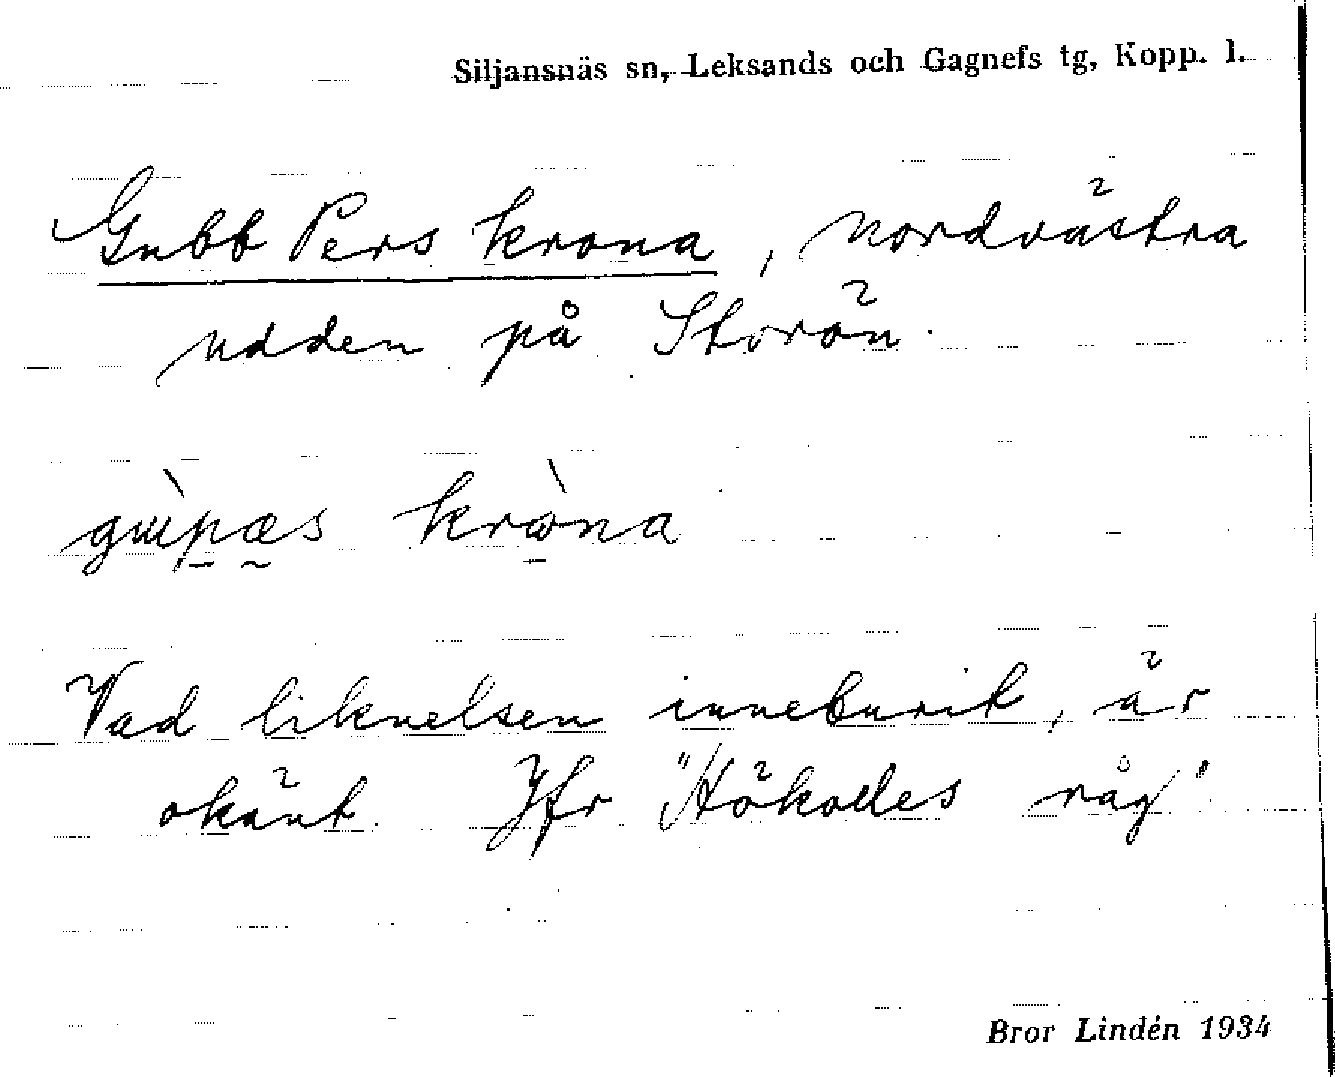 Siljansnäs sn, Leksands och Gagnefs tg, Kopp. l.
Gubb Pers krona, nordvästra
udden på Storön.
gɯ̀pæs kròna
Vad liknelsen inneburit, är
okänt. Jfr "Hökolles råg"
Bror Lindén 1934